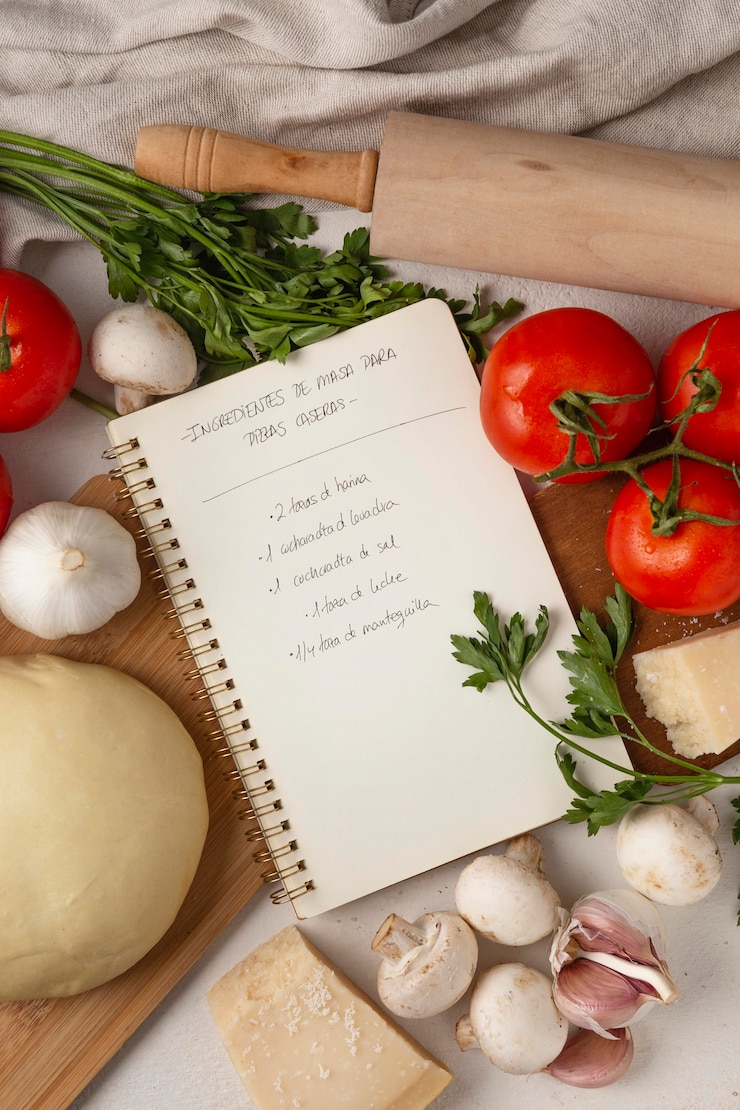 -INGREDIENTES DE MASA PARA
PIZZAS CASERAS-
• 2 tazas de harina
• 1 cucharadita de levadura
• 1 cucharadita de sal
• 1 taza de leche
• 1/4 taza de mantequilla